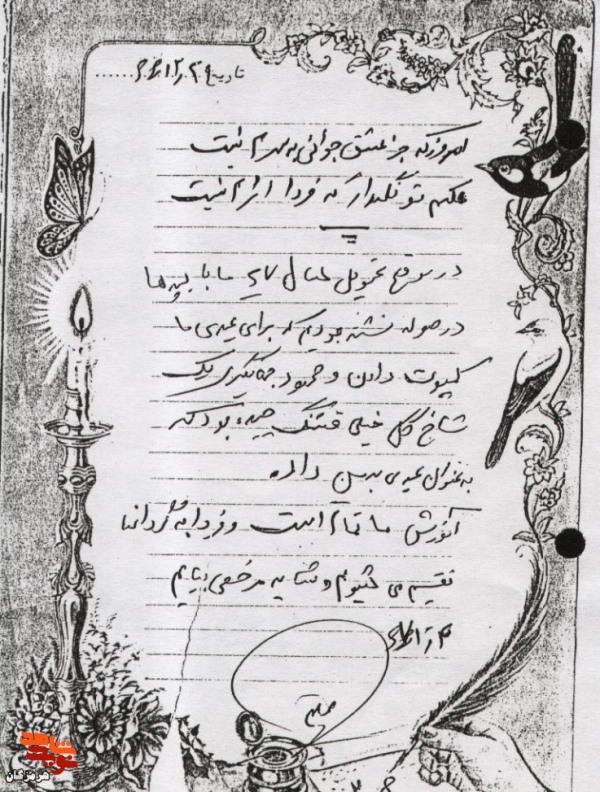 تاریخ
امروز که جز عشق جوانی به سرم نیست
عکسم تو نگهدار که فردا اثرم نیست
در موقع تحویل سال ما با بچه‌ها
در نشسته بودیم که برای عیدی ما
کمپوت دادن و محمود جهانگیری یک
شاخ گل خیلی قشنگ چیده بود که
به عنوان عیدی به من داد.
آموزش ما تمام است و فردا به گردانها
تقسیم می شویم و شاید مرخصی بیایم
نوید شاهد
هرمزگان